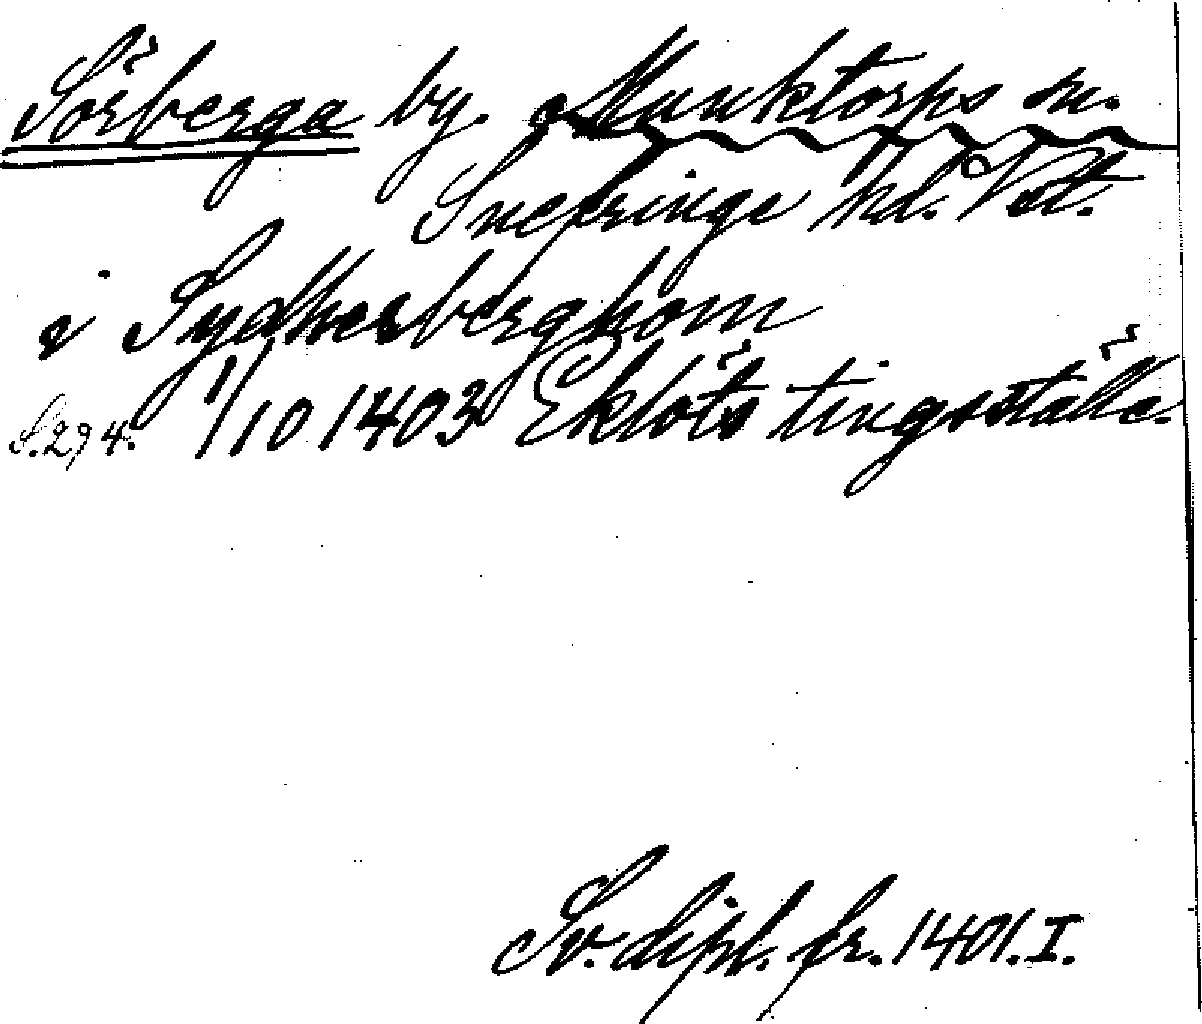 Sörberga by. Munktorps sn.
Snefringe hd. Vstl.
i Sydherberghom
S. 294. 1/10 1403 Eklöts tingsställe.
Sv. dipl. fr. 1401. I.